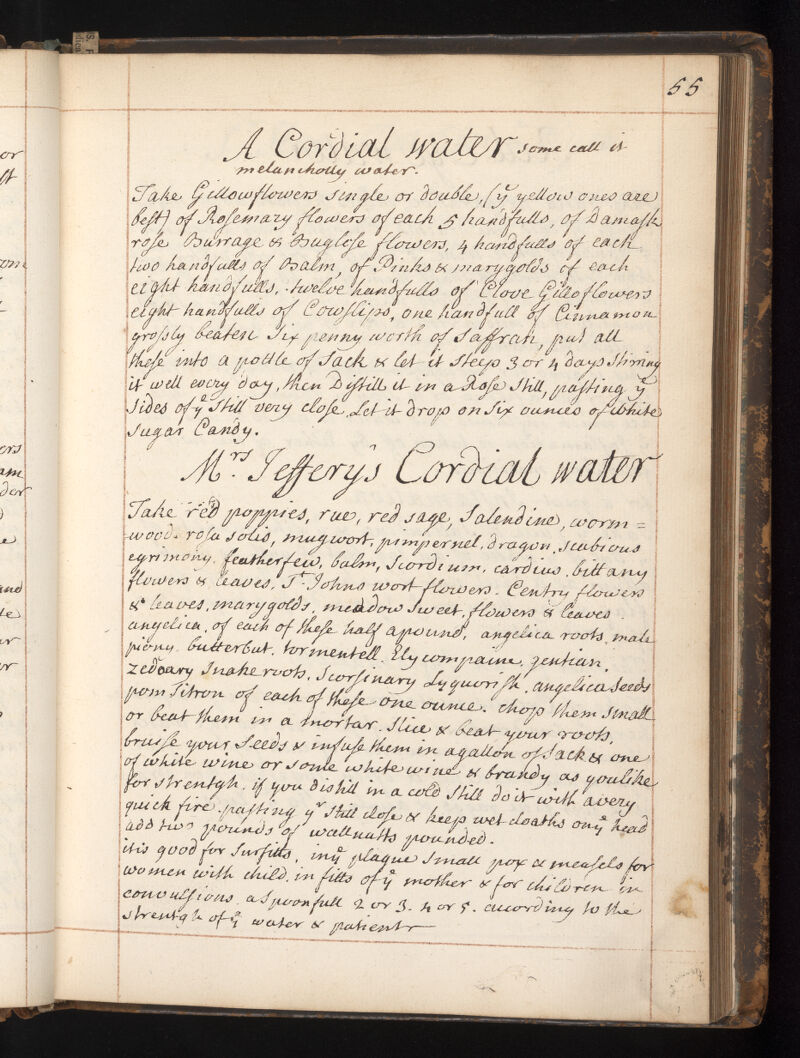 55
A Cordial water some call it
melancholly water.
Take Gillowflowers single or double, (yͤ yellow ones are
best) of Rosemary flowers of each 5 handfulls, of Damask
rose Burrage & Buglose flowers, 4 handfulls of each
two handfulls of Balm, of Pinks & marygolds of each
eight handfulls, twelve handfulls of Clove Gilloflowers
eight handfulls of Cowslips, one handfull of Cinnamon
grossly beaten Six penny worth of Saffran, put all
these into a pottle of Sack & let it steep 3 or 4 days stirring
it well every day, then Distill it in a Rose Still, pasting yͤ
sides of yͤ Still very close. Let it drop on six ounces of white
Sugar Candy.
Mʳˢ. Jefferys Cordial water
Take red poppies, rue, red sage, Salendine, worm=
wood. rosa solis, mugwort, pimpernel, dragon, scabious
egrimony, featherfew, balm, scordium, cardius, bittany
flowers & leaves, Sᵗ. Johns wort flowers. Centry flowers
& leaves, marygolds, meadow sweet, flowers & leaves
angelica, of each of these half a pound, angelica roots, male
piony, butterbut, tormentell, Elycompaine, gentian,
zedoary snake roots, Scorsinary Lyquorish, angelica seeds
pom Sitron of each of these one ounce. chop them small
or beat them in a mortar. slice & beat your roots,
bruise your seeds & infuse them in a gallon of Sack & one
of white wine or some white wine & brandy as you like
for strentgh. if you distill in a cold still do it with a very
quick fire. pasting yʳ still close & keep wet cloaths on yͤ head
add two pounds of wallnutts pounded.
it is good for surfitts, in yͤ plague small pox & measels for
women with child, in fitts of yͤ mother & for children in
convulsions, a spoonfull 2 or 3. 4 or 5. according to the
strentgh of yͤ water & patient